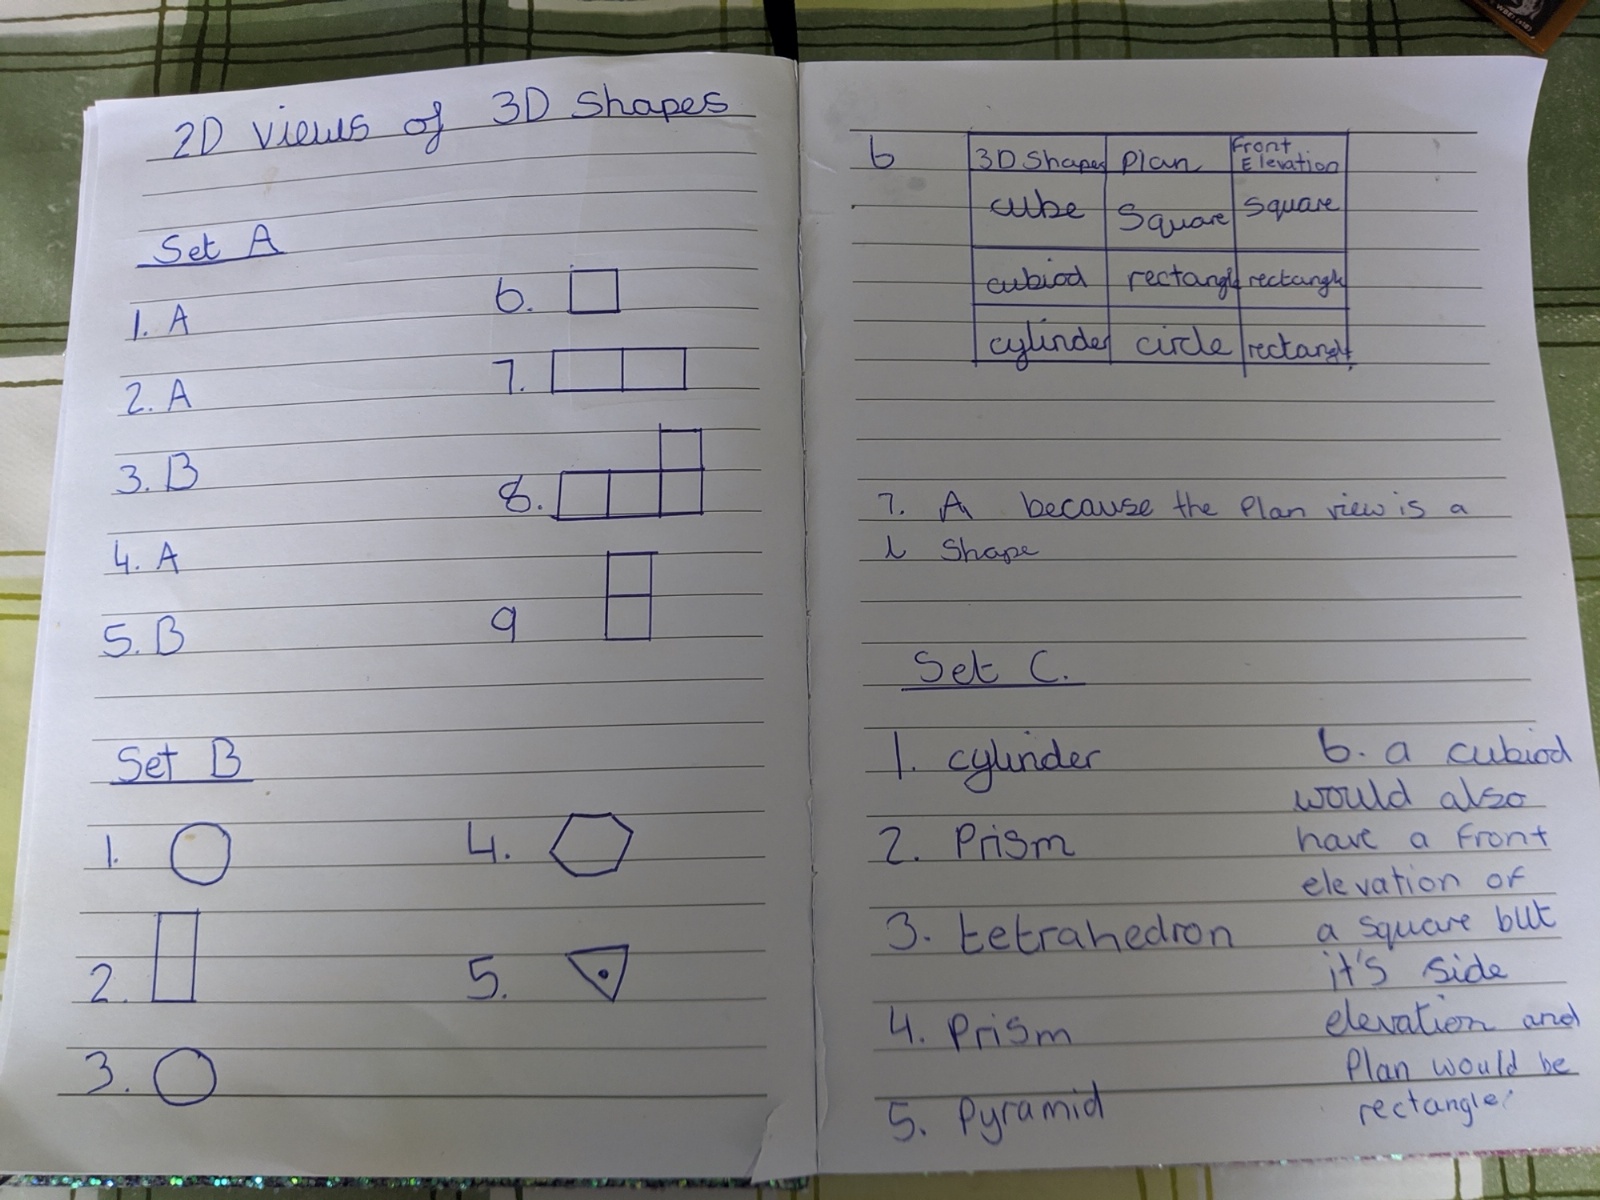 2D views of 3D Shapes
Set A
1. A
2. A
3. B
4. A
5. B
6.
7.
8.
9
Set B
1.
2.
3.
4.
5.
6
3D Shapes Plan Front Elevation
cube Square Square
cubiod rectangle rectangle
cylinder circle rectangle
7. A because the Plan view is a
L Shape
Set C.
1. cylinder
2. Prism
3. tetrahedron
4. Prism
5. Pyramid
6. a cubiod
would also
have a Front
elevation of
a square but
it's side
elevation and
Plan would be
rectangle.